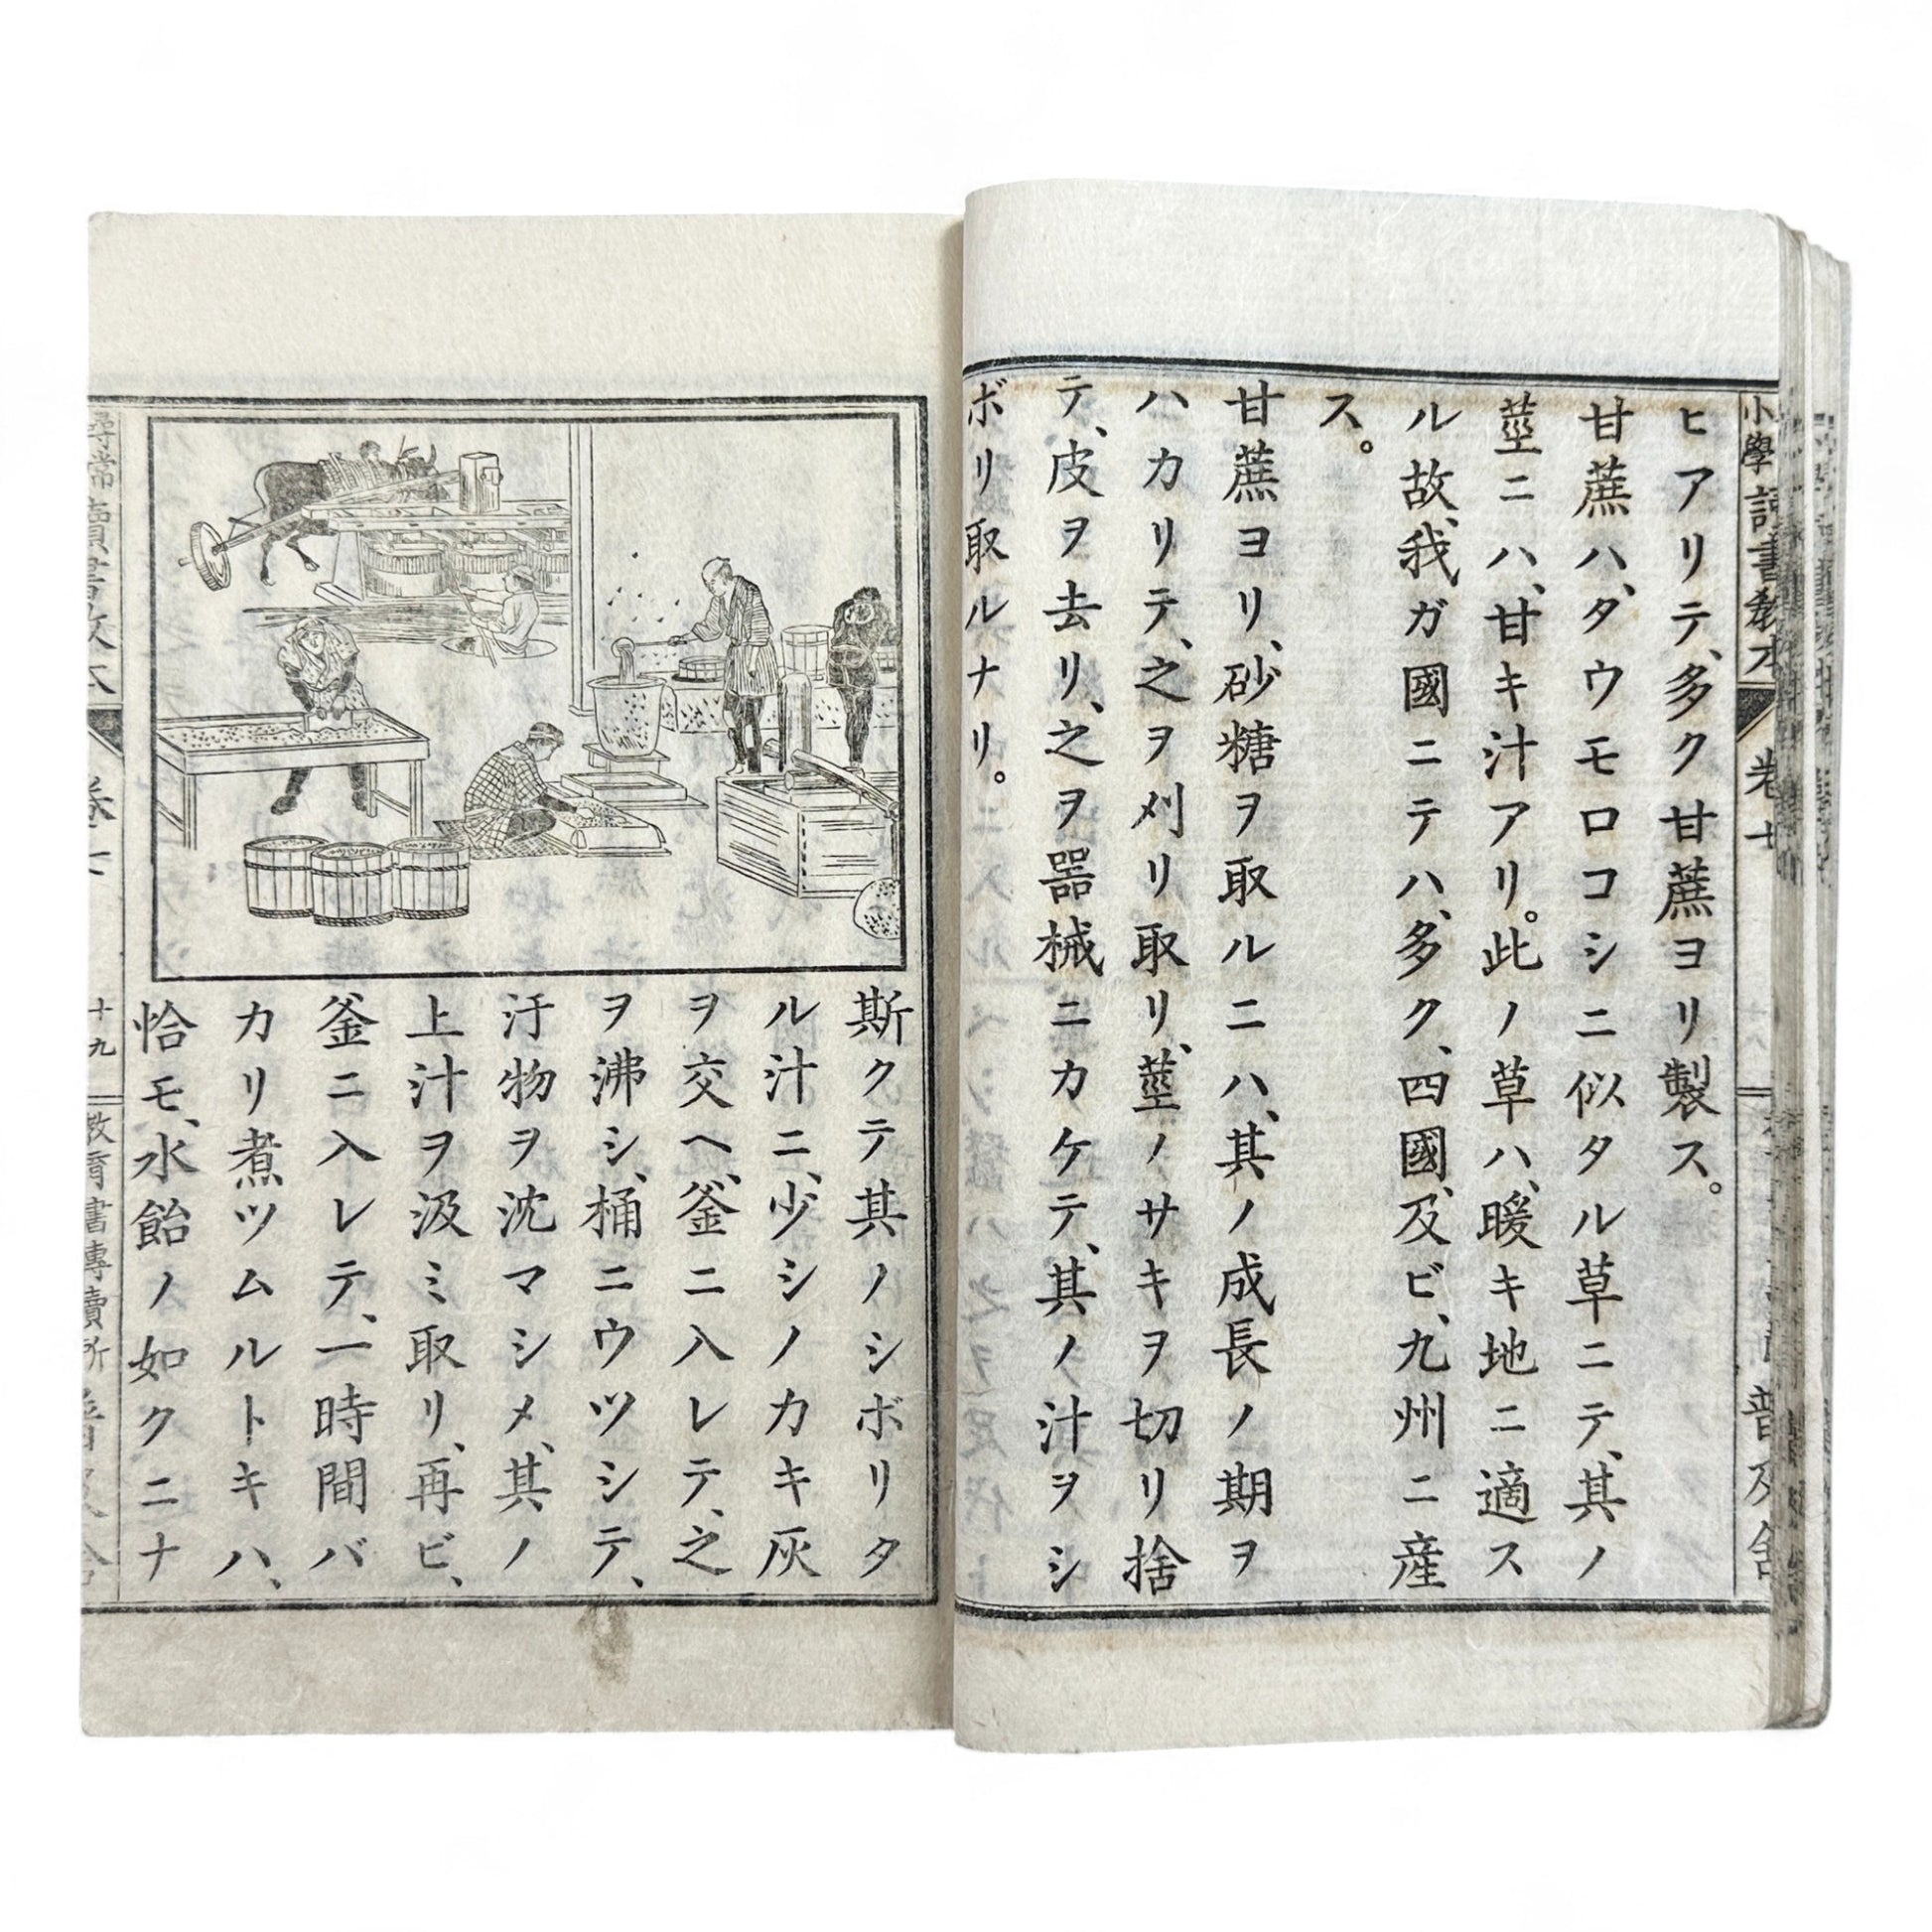 小學讀書教本
卷七
普及舍
ヒアリテ、多ク甘蔗ヨリ製ス。
甘蔗ハ、タウモロコシニ似タル草ニテ、其ノ
莖ニハ、甘キ汁アリ。此ノ草ハ、暖キ地ニ適ス
ル故、我ガ國ニテハ、多ク、四國、及ビ、九州ニ産
ス。
甘蔗ヨリ、砂糖ヲ取ルニハ、其ノ成長ノ期ヲ
ハカリテ、之ヲ刈リ取リ、莖ノサキヲ切リ捨
テ、皮ヲ去リ、之ヲ器械ニカケテ、其ノ汁ヲシ
ボリ取ルナリ。
斯クテ其ノシボリタ
ル汁ニ、少シノカキ灰
ヲ交ヘ、釜ニ入レテ、之
ヲ沸シ、桶ニウツシテ、
汙物ヲ沈マシメ、其ノ
上汁ヲ汲ミ取リ、再ビ、
釜ニ入レテ、一時間バ
カリ煮ツムルトキハ、
恰モ、水飴ノ如クニナ
尋常讀書教本
卷七
十九
教育書專賣所
普及舍